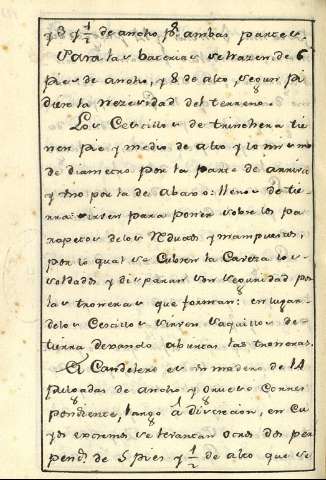 y 3 y 1/2 de ancho pr. ambas partes.
Para las baceras se hazen de 6
pies de ancho, y 8 de alto, segun pi
diere la nezesidad del terreno.
Los Cestillos de trinchera tie
nen pie y medio de alto y lo mismo
de diametro por la parte de arriva
y uno por la de abaxo: llenos de tie
rra: sirven para poner sobre los pa
rapetos de los Reductos y mampuestas,
por lo qual se Cubren la Caveza los
soldados y disparan con seguridad por
las troneras que forman: en lugar
de los Cestillos sirven saquillos de
tierra dexando abiertas las troneras.
El Candelero es un madero de 14
pulgadas de ancho y grueso Corres
pondiente, largo á discrecion, en cu
yos extremos se levantan otros dos per
pend.s de 5 pies y 1/2 de alto que se